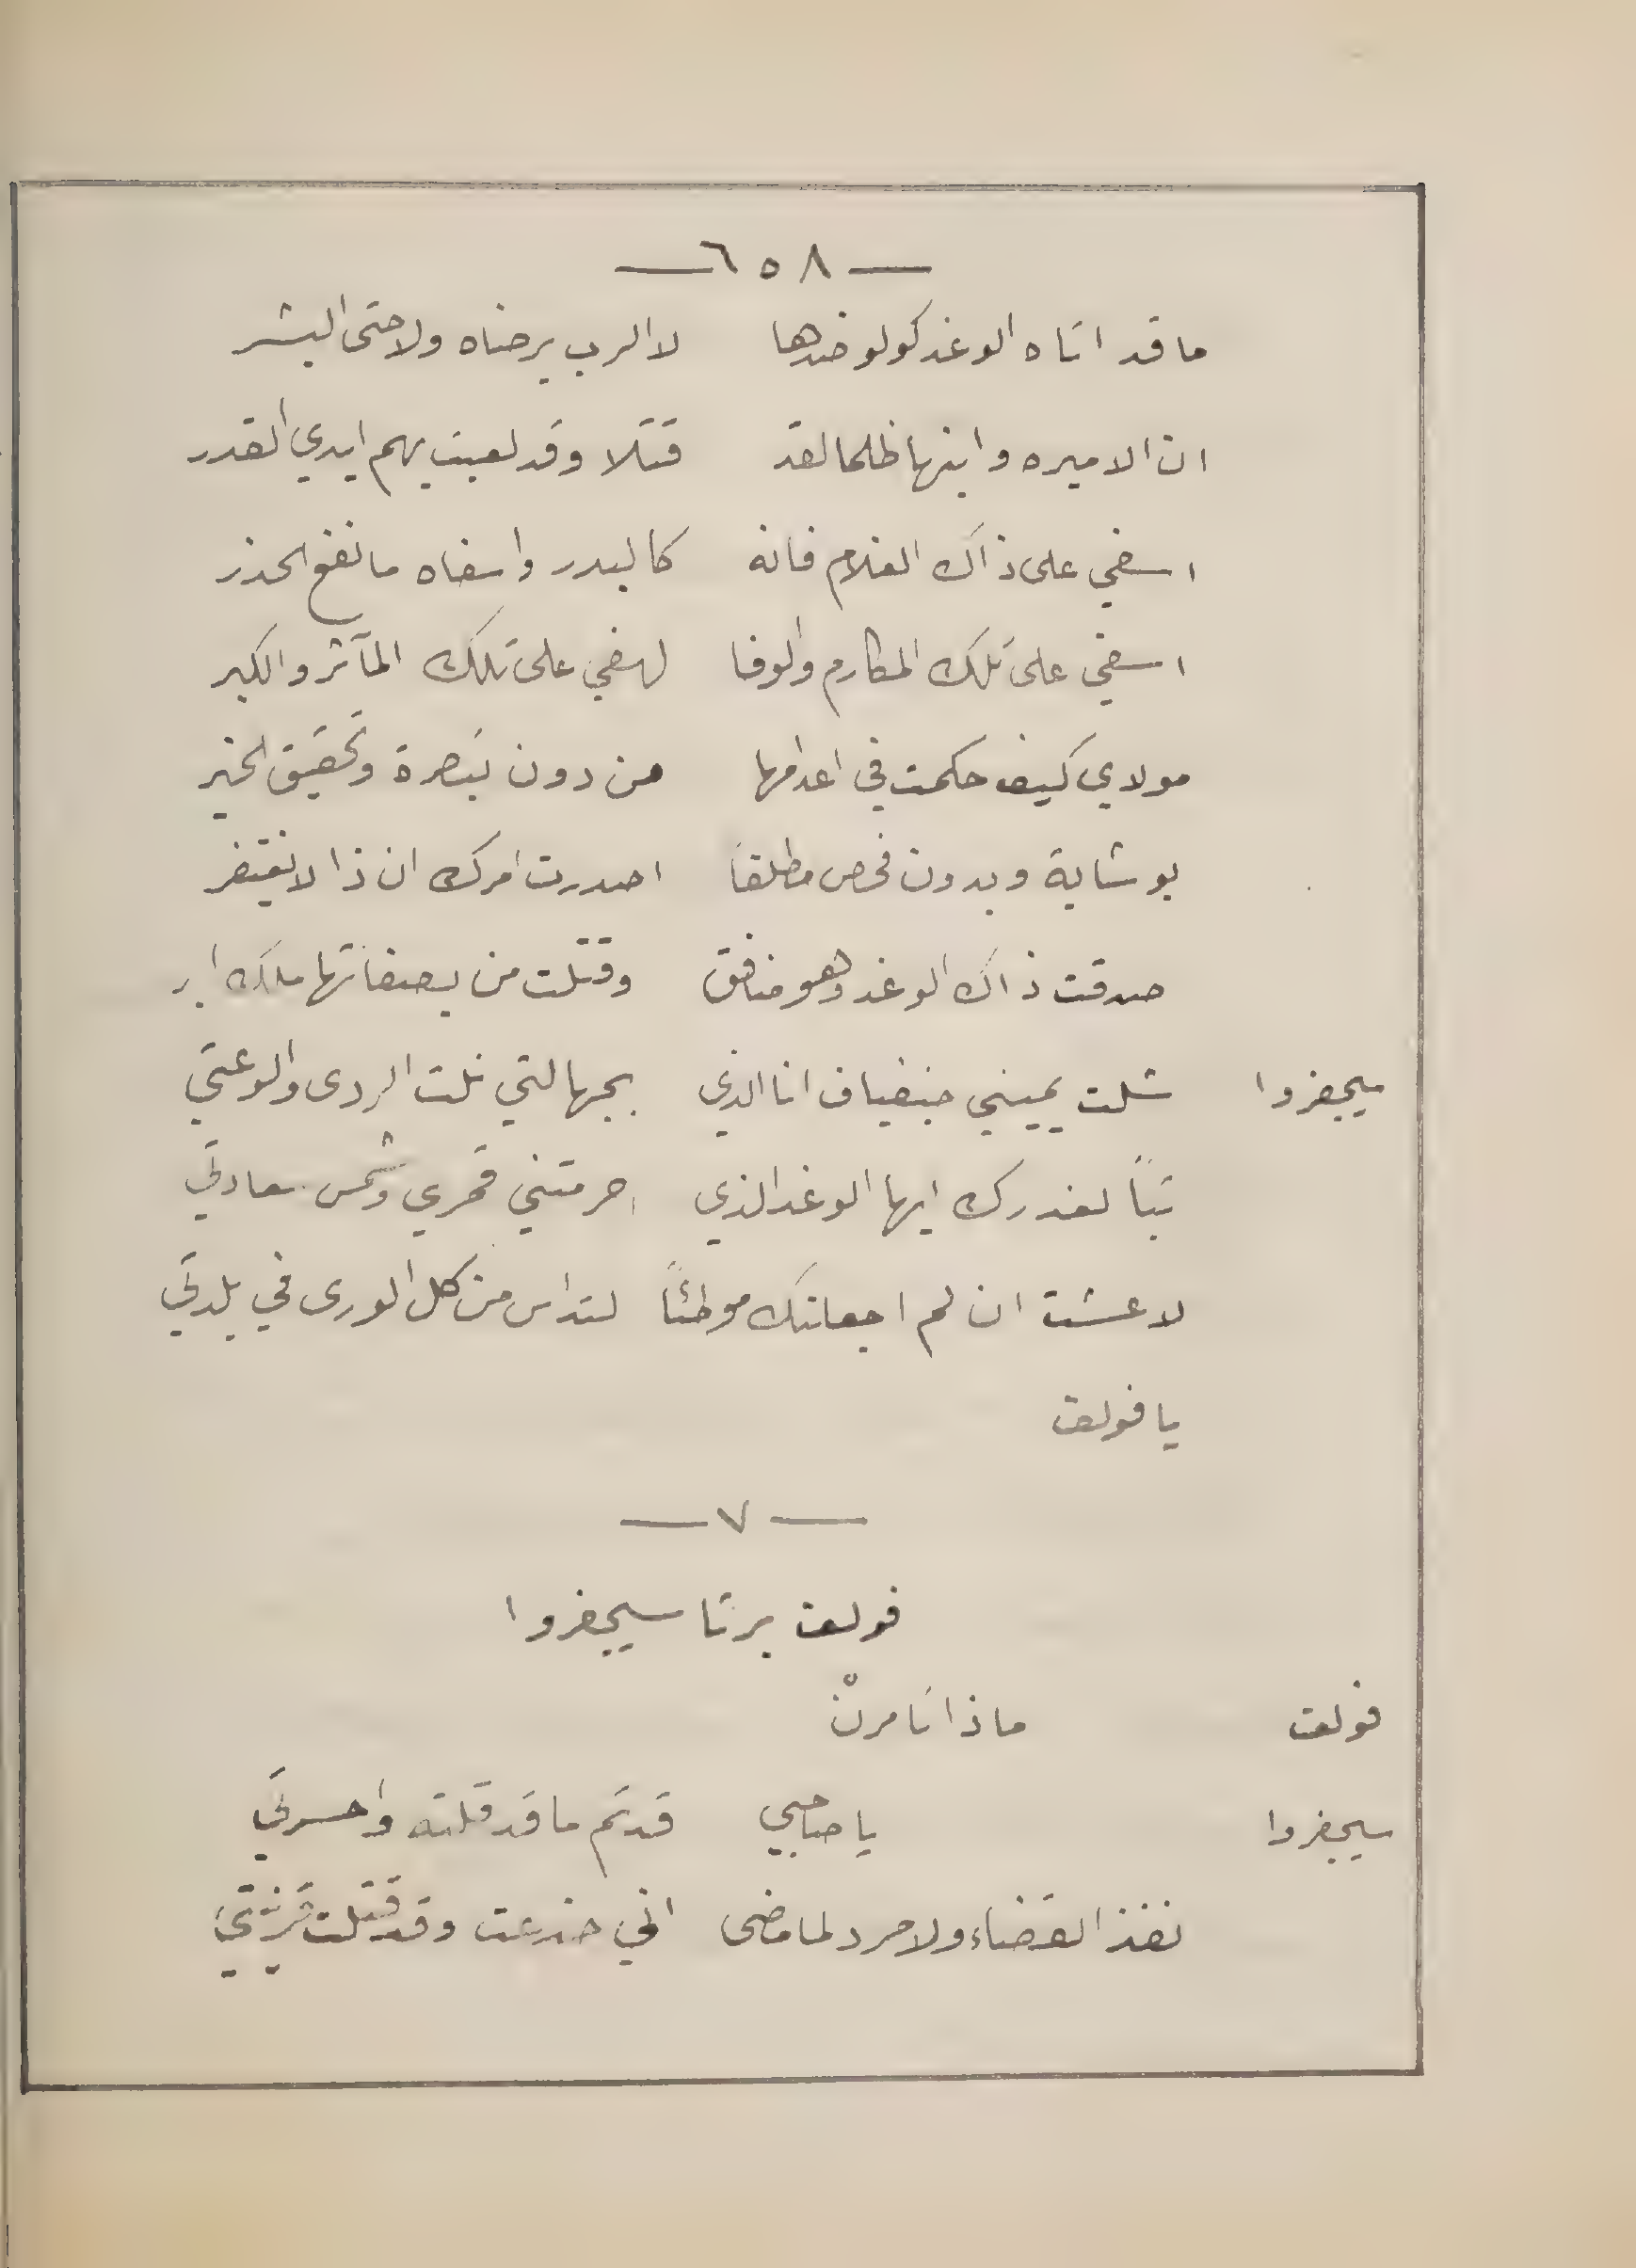 — ٦٥٨ —
ما قد اتاه الوغد كولو ضدها لا الرب يرضاه ولا حتى البشر
ان الاميره وابنها ظلما لقد قتلا وقد لعبت بهم ايدي القدر
اسفي على ذاك الغلام فانه كالبدر وا سفاه ما نفع الحذر
اسفي على تلك المكارم والوفا لهفي على تلك المآثر والكبر
مولاي كيف حكمت في اعدامها من دون تبصرة وتحقيق الخبر
بوشاية وبدون فحص مطلقا اصدرت امرك ان ذا لا يغتفر
صدقت ذاك الوغد وهو منافق وقتلت من بصفاتها ملك ابر
سيجفروا شلت يميني جنفياف انا الذي بجهالتي نلت الردى والوعتي
تباً لغدرك ايها الوغد الذي احرمتني قمري وشمس سعادتي
لا عشت ان لم اجعلنك موطئاً لتداس من كل الورى في بلدتي
يا فولف
— ٧ —
فولف برتا سيجفروا
فولف ماذا تامرنْ
سيجفروا يا صاحبي قد تم ما قد قلته واحسرتي
نفذ القضاء ولا مرد لما مضى اني خدعت وقد قتلت قرينتي